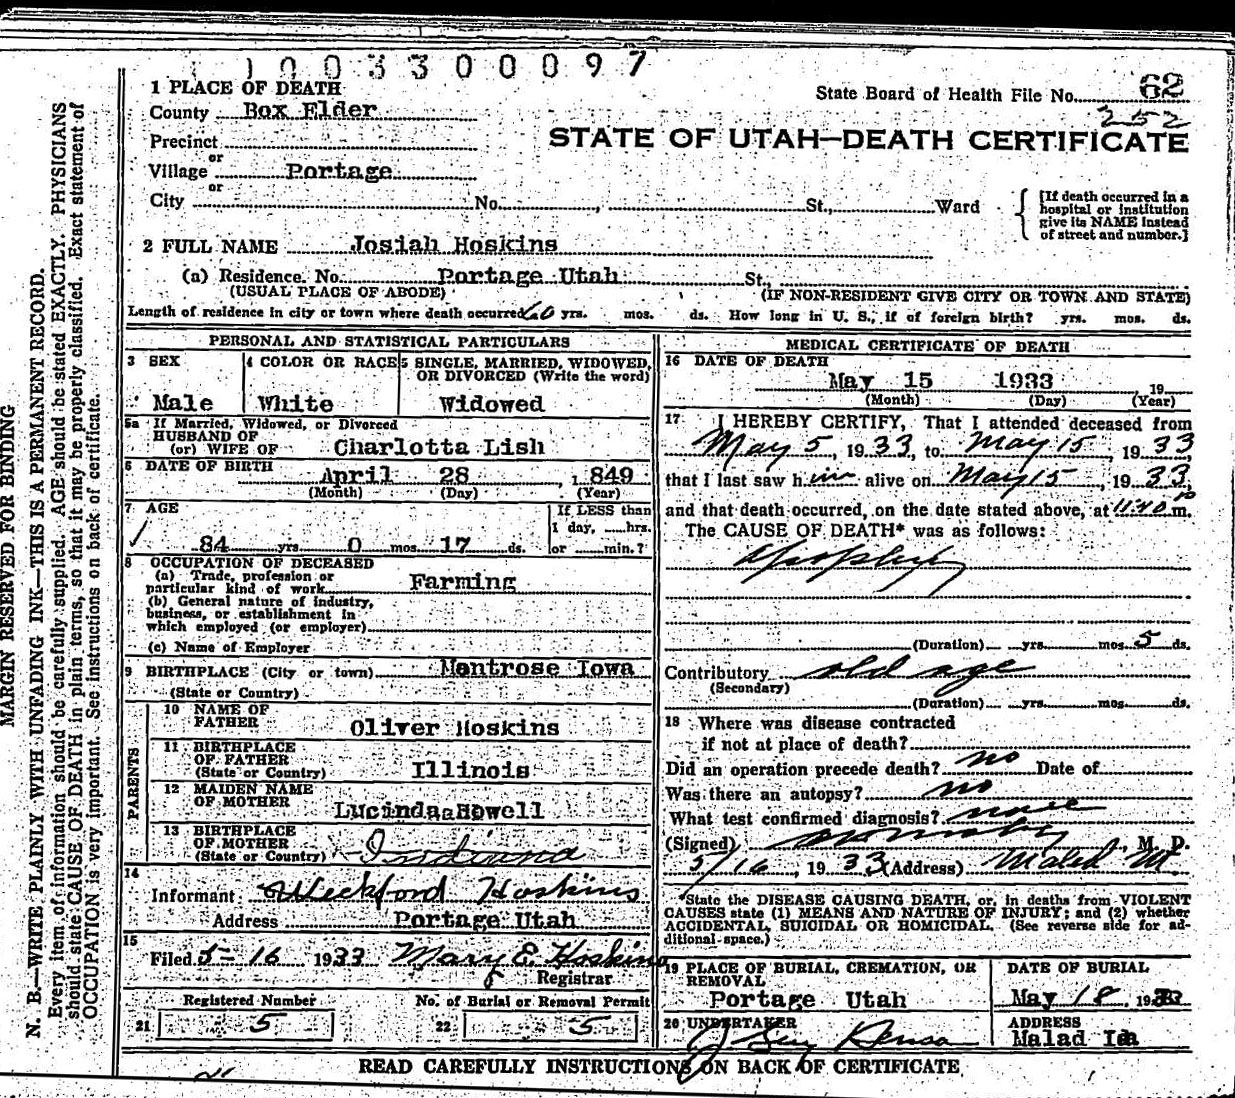 1003300097
1 PLACE OF DEATH
State Board of Health File No. 62
County Box Elder
252
STATE OF UTAH—DEATH CERTIFICATE
Precinct
or
Village Portage
or
City No. , St., Ward
[If death occurred in a
hospital or institution
give its NAME instead
of street and number.]
2 FULL NAME Josiah Hoskins
(a) Residence. No. Portage Utah St.,
(USUAL PLACE OF ABODE) (IF NON-RESIDENT GIVE CITY OR TOWN AND STATE)
Length of residence in city or town where death occurred 60 yrs. mos. ds. How long in U. S., if of foreign birth? yrs. mos. ds.
PERSONAL AND STATISTICAL PARTICULARS
3 SEX
Male
4 COLOR OR RACE
White
5 SINGLE, MARRIED, WIDOWED,
OR DIVORCED (Write the word)
Widowed
5a If Married, Widowed, or Divorced
HUSBAND OF
(or) WIFE OF Charlotta Lish
6 DATE OF BIRTH
April 28, 1849
(Month) (Day) (Year)
7 AGE
84 yrs 0 mos. 17 ds.
If LESS than
1 day, hrs.
or min.?
8 OCCUPATION OF DECEASED
(a) Trade, profession or
particular kind of work Farming
(b) General nature of industry,
business, or establishment in
which employed (or employer)
(c) Name of Employer
9 BIRTHPLACE (City or town) Montrose Iowa
(State or Country)
PARENTS
10 NAME OF
FATHER Oliver Hoskins
11 BIRTHPLACE
OF FATHER
(State or Country) Illinois
12 MAIDEN NAME
OF MOTHER Lucinda Howell
13 BIRTHPLACE
OF MOTHER
(State or Country) Indiana
14
Informant Hoskins
Address Portage Utah
15
Filed 5-16 1933 Mary E Hoskins
Registrar
Registered Number
21 5
No. of Burial or Removal Permit
22 5
MEDICAL CERTIFICATE OF DEATH
16 DATE OF DEATH
May 15 1933, 19
(Month) (Day) (Year)
17 I HEREBY CERTIFY, That I attended deceased from
May 5, 1933, to May 15, 1933,
that I last saw him alive on May 15, 1933,
and that death occurred, on the date stated above, at 11:40 p m.
The CAUSE OF DEATH* was as follows:
(Duration) yrs. mos. 5 ds.
Contributory old age
(Secondary)
(Duration) yrs. mos. ds.
18 Where was disease contracted
if not at place of death?
Did an operation precede death? no Date of
Was there an autopsy? no
What test confirmed diagnosis? none
(Signed) , M. D.
5/16, 1933 (Address) Malad
*State the DISEASE CAUSING DEATH, or, in deaths from VIOLENT
CAUSES state (1) MEANS AND NATURE OF INJURY; and (2) whether
ACCIDENTAL, SUICIDAL OR HOMICIDAL. (See reverse side for ad-
ditional space.)
19 PLACE OF BURIAL, CREMATION, OR
REMOVAL
Portage Utah
DATE OF BURIAL
May 18, 1933
20 UNDERTAKER
ADDRESS
Malad Ida
READ CAREFULLY INSTRUCTIONS ON BACK OF CERTIFICATE
MARGIN RESERVED FOR BINDING
N. B.—WRITE PLAINLY WITH UNFADING INK—THIS IS A PERMANENT RECORD.
Every item of information should be carefully supplied. AGE should be stated EXACTLY. PHYSICIANS
should state CAUSE OF DEATH in plain terms, so that it may be properly classified. Exact statement of
OCCUPATION is very important. See instructions on back of certificate.